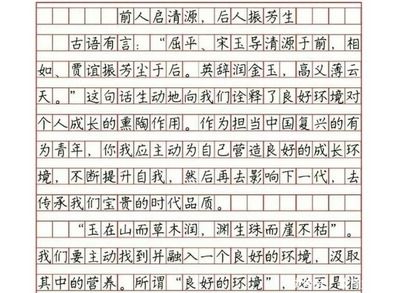 前人启清源，后人振芳生
古语有言：“屈平、宋玉导清源于前，相
如、贾谊振芳尘于后。英辞润金玉，高义薄云
天。”这句话生动地向我们诠释了良好环境对
个人成长的熏陶作用。作为担当中国复兴的有
为青年，你我应主动为自己营造良好的成长环
境，不断提升自我，然后再去影响下一代，去
传承我们宝贵的时代品质。
“玉在山而草木润，渊生珠而崖不枯”。
我们要主动找到并融入一个良好的环境，汲取
其中的营养。所谓“良好的环境”，并不是指